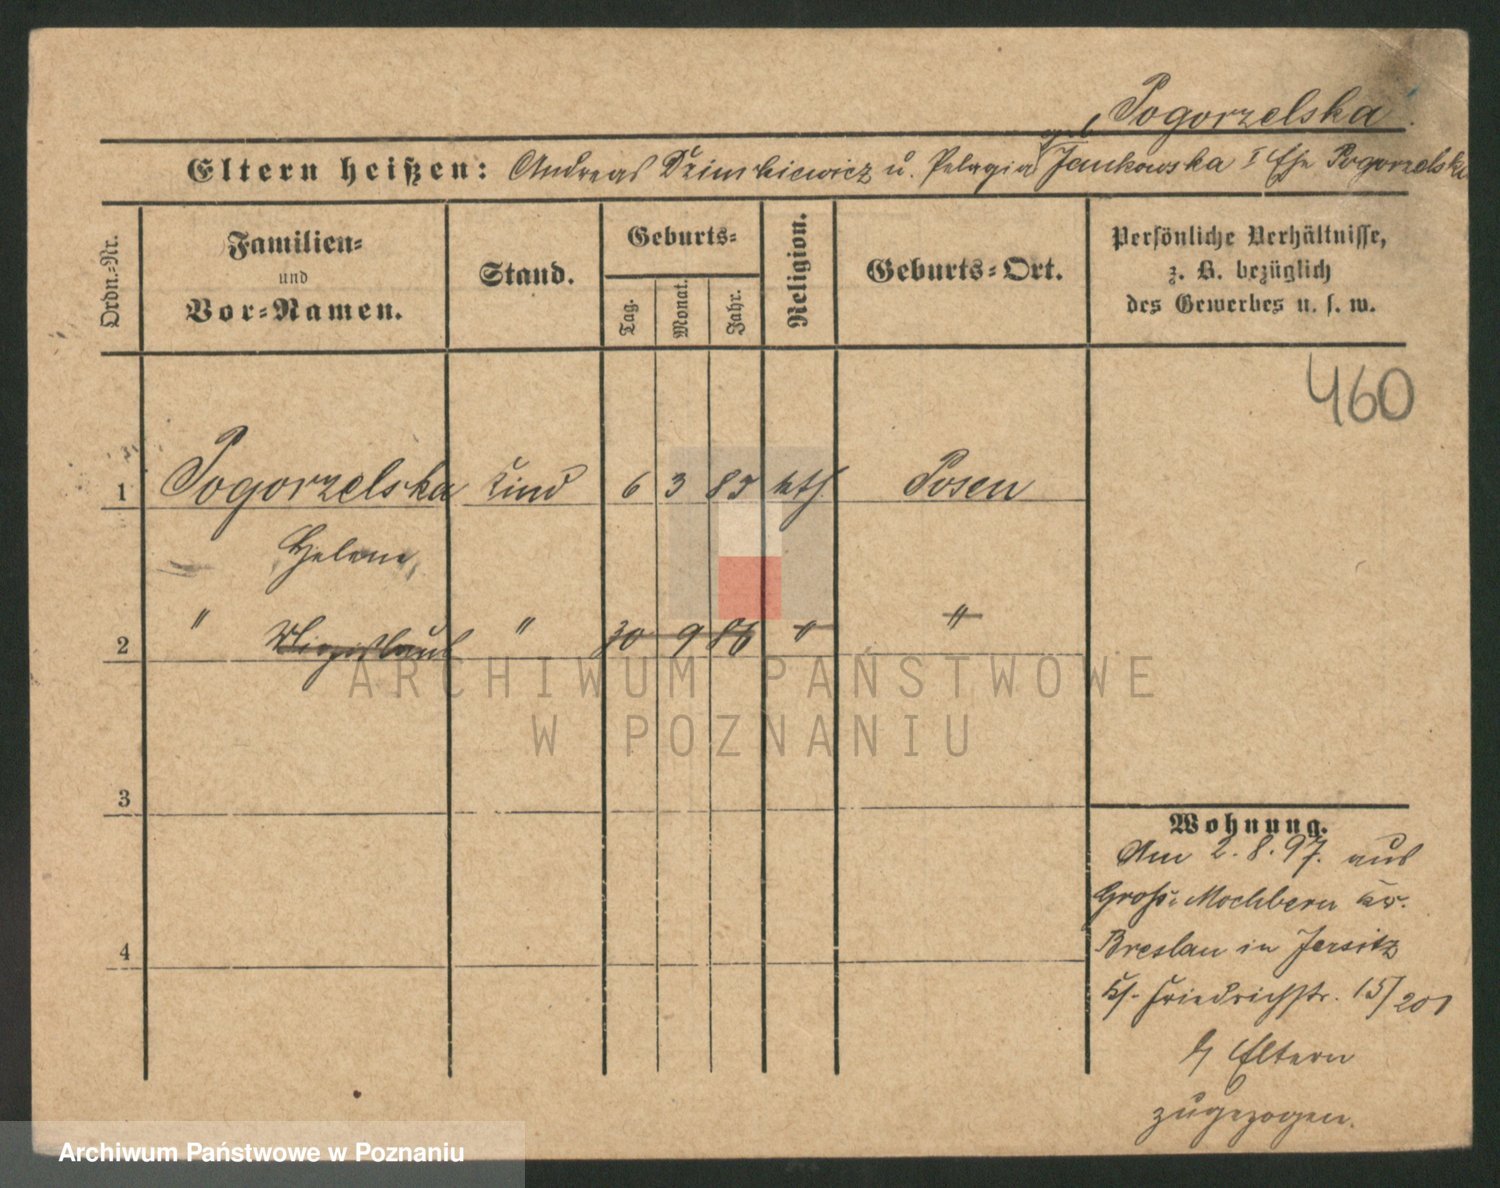 Pogorzelska
Eltern heißen: Andreas Dzimkiewicz u. Pelagia geb Jankowska I Ehe Pogorzelska
Ordn.-Nr.
Familien-
und
Vor-Namen.
Stand.
Geburts-
Tag.
Monat.
Jahr.
Religion.
Geburts-Ort.
Persönliche Verhältnisse,
z. B. bezüglich
des Gewerbes u. s. w.
460
1 Pogorzelska Kind 6 3 85 kth Posen
Helene
2 " " 30 9 86 " "
3
4
Wohnung.
Am 2.8.97. aus
Groß-Mochbern Kr.
Breslau in Jersitz
Ks. Friedrichstr. 15/201
b/ Eltern
zugezogen.
ARCHIWUM PAŃSTWOWE
W POZNANIU
Archiwum Państwowe w Poznaniu